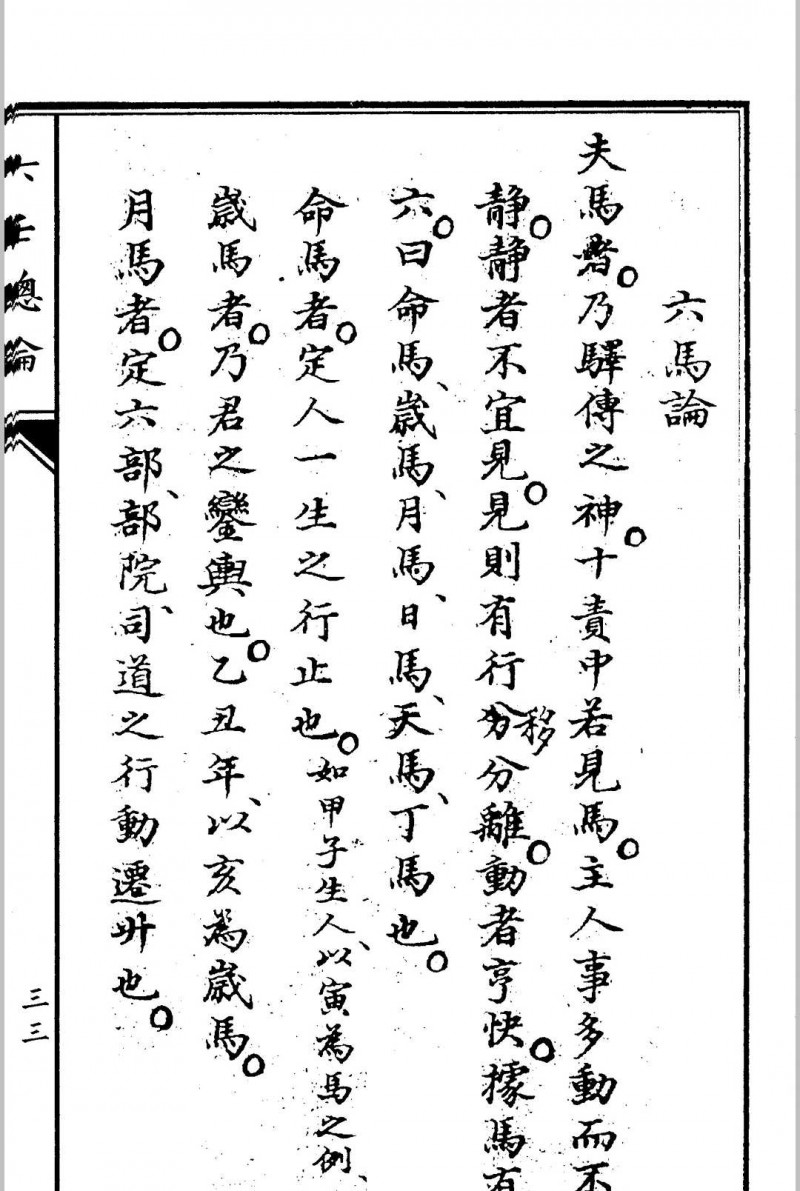 六馬論
夫馬者。乃驛傳之神。十責中若見馬。主人事多動而不
靜。靜者不宜見。見則有行移分離。動者亨快。據馬有
六。曰命馬、歲馬、月馬、日馬、天馬、丁馬也。
命馬者。定人一生之行止也。如甲子生人、以寅為馬之例、
歲馬者。乃君之鑾輿也。乙丑年、以亥為歲馬。
月馬者。定六部、部院、司道之行動遷升也。
六壬總論
三三